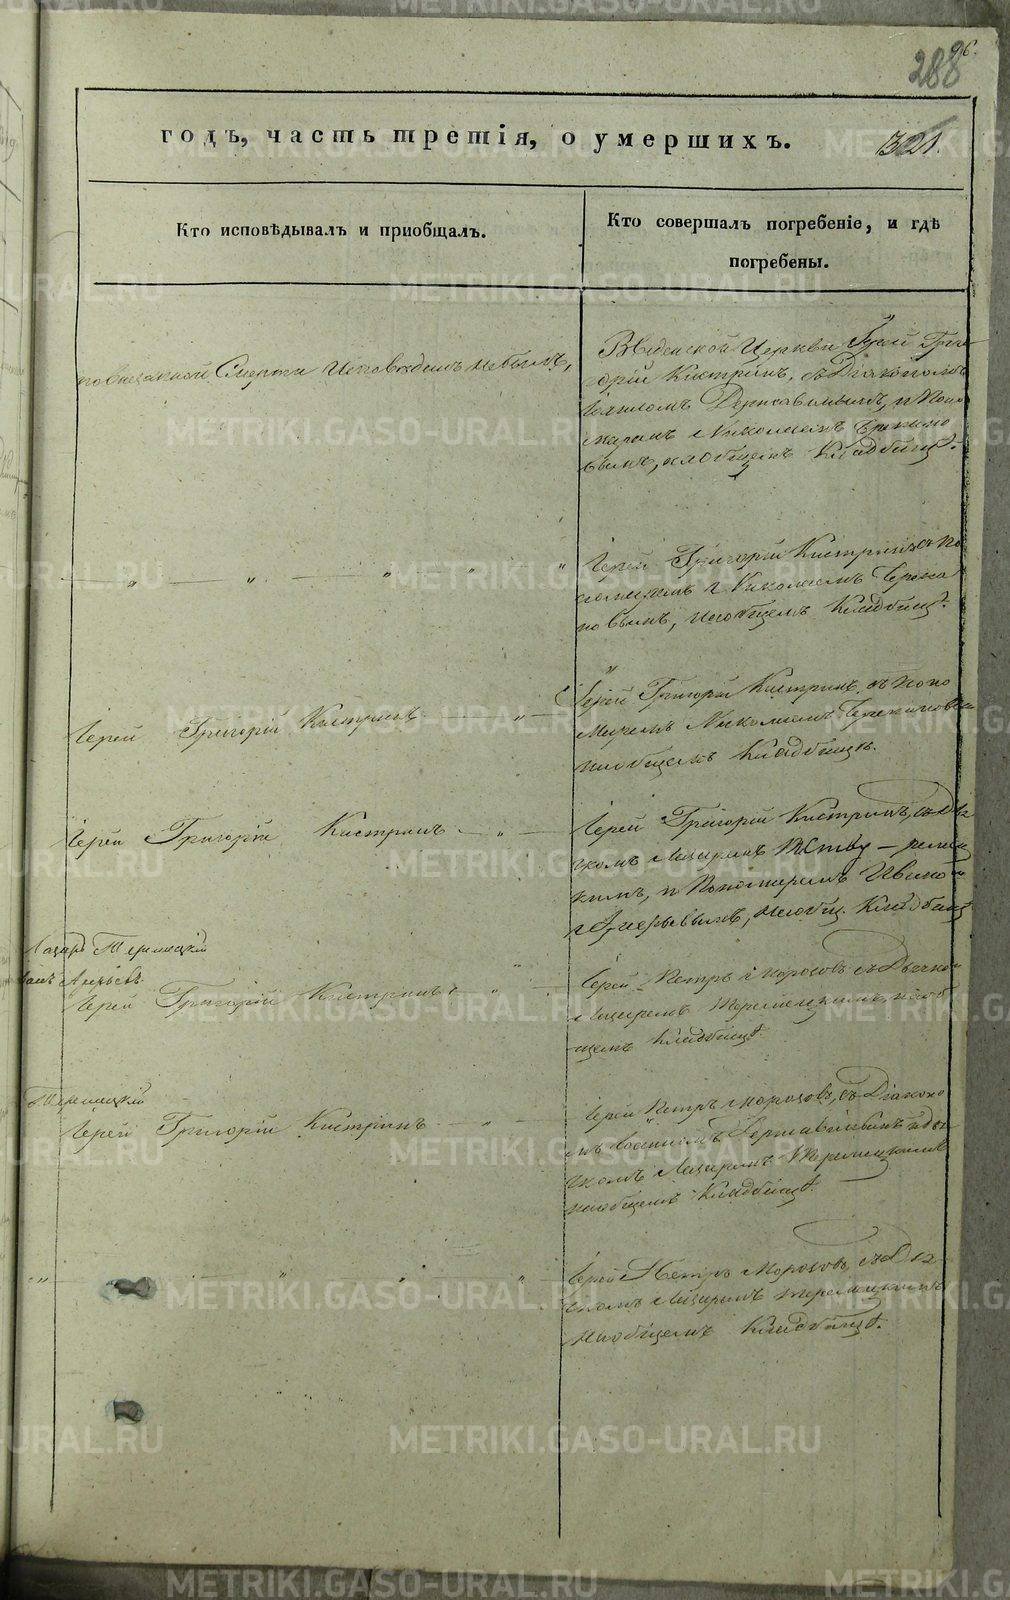 96.
288
годъ, часть третія, о умершихъ.
321.
Кто исповѣдывалъ и пріобщалъ.
Кто совершалъ погребеніе, и гдѣ
погребены.
по внезапной Смерти Исповѣданъ небылъ,
Введенской Церкви Іерей Гри-
горій Кистринъ, съ Діакономъ
Державинымъ, и Поно
маремъ Николаемъ
вымъ, на общемъ Кладбищѣ.
Іерей Григорій Кистринъ съ По
номаремъ Николаемъ
новымъ, на общемъ Кладбищѣ.
Іерей Григорій Кистринъ
Іерей Григорій Кистринъ, съ Поно
маремъ Николаемъ
на общемъ Кладбищѣ.
Іерей Григорій Кистринъ
Іерей Григорій Кистринъ, съ Дья
комъ Лазаремъ
кимъ, и Пономаремъ Иваномъ
на общ. Кладбищѣ
Лазарь
Іерей Григорій Кистринъ
Іерей Петръ Морозовъ съ Дьячко
Лазаремъ Термицкимъ, на об
щемъ Кладбищѣ.
Термицкій
Іерей Григорій Кистринъ
Іерей Петръ Морозовъ, съ Діаконо
мъ Державинымъ и Дья
чкомъ Лазаремъ Термицкимъ
на общемъ Кладбищѣ.
Іерей Петръ Морозовъ, съ Дья
чкомъ Лазаремъ Термицкимъ
на общемъ Кладбищѣ.
METRIKI.GASO-URAL.RU